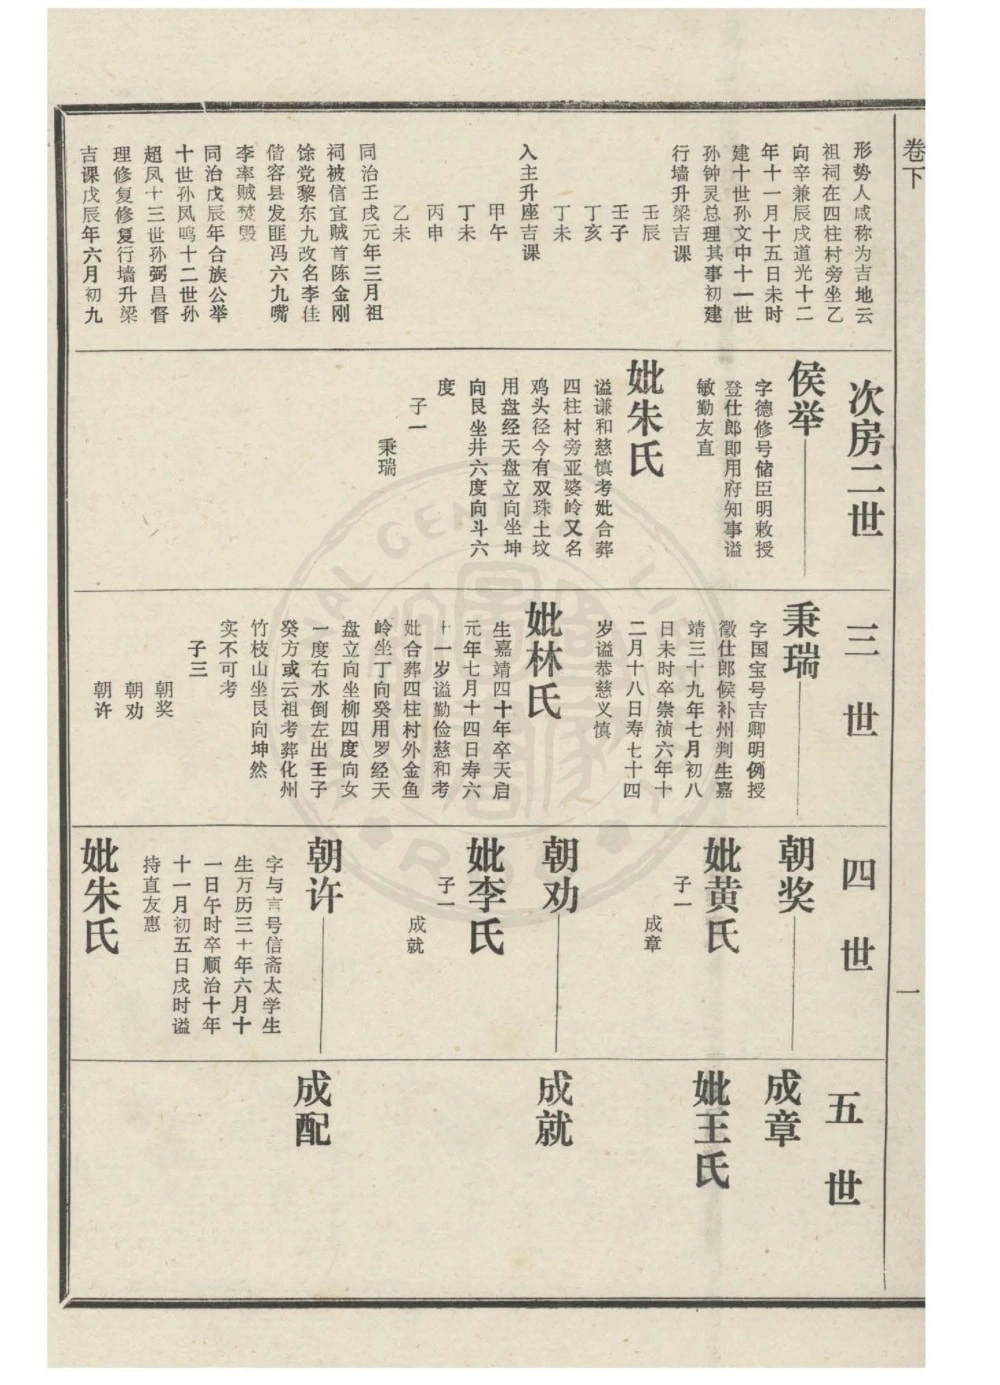 卷下
一
形势人咸称为吉地云
祖祠在四柱村旁坐乙
向辛兼辰戌道光十二
年十一月十五日未时
建十世孙文中十一世
孙钟灵总理其事初建
行墙升梁吉课
壬辰
壬子
丁亥
丁未
入主升座吉课
甲午
丁未
丙申
乙未
同治壬戌元年三月祖
祠被信宜贼首陈金刚
馀党黎东九改名李佳
偕容县发匪冯六九嘴
李率贼焚毁
同治戊辰年合族公举
十世孙凤鸣十二世孙
超凤十三世孙弼昌督
理修复修复行墙升梁
吉课戊辰年六月初九
次房二世
侯举
字德修号储臣明敕授
登仕郎即用府知事谥
敏勤友直
妣朱氏
谥谦和慈慎考妣合葬
四柱村旁亚婆岭又名
鸡头径今有双珠土坟
用盘经天盘立向坐坤
向艮坐井六度向斗六
度
子一
秉瑞
三世
秉瑞
字国宝号吉卿明例授
徵仕郎候补州判生嘉
靖三十九年七月初八
日未时卒崇祯六年十
二月十八日寿七十四
岁谥恭慈义慎
妣林氏
生嘉靖四十年卒天启
元年七月十四日寿六
十一岁谥勤俭慈和考
妣合葬四柱村外金鱼
岭坐丁向癸用罗经天
盘立向坐柳四度向女
一度右水倒左出壬子
癸方或云祖考葬化州
竹枝山坐艮向坤然
实不可考
子三
朝奖
朝劝
朝许
四世
朝奖
妣黄氏
子一
成章
朝劝
妣李氏
子一
成就
朝许
字与言号信斋太学生
生万历三十年六月十
一日午时卒顺治十年
十一月初五日戌时谥
持直友惠
妣朱氏
五世
成章
妣王氏
成就
成配